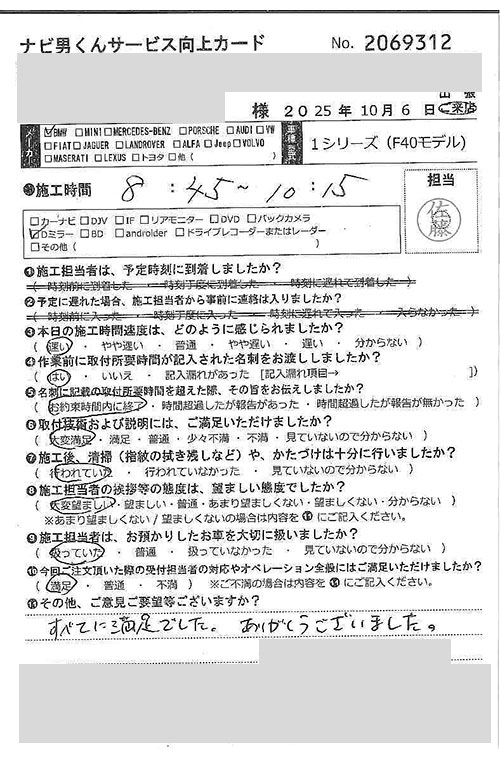 ナビ男くんサービス向上カード No. 2069312
出張
様 2025年10月6日 ご来店
メーカー ☑BMW □MINI □MERCEDES-BENZ □PORSCHE □AUDI □VW
□FIAT □JAGUER □LANDROVER □ALFA □Jeep □VOLVO
□MASERATI □LEXUS □トヨタ □他( )
車種・型式 1シリーズ（F40モデル）
●施工時間 8:45~10:15
担当
佐藤
□カーナビ □DJV □IF □リアモニター □DVD □バックカメラ
☑Dミラー □BD □androider □ドライブレコーダーまたはレーダー
□その他( )
❶施工担当者は、予定時刻に到着しましたか？
( 時刻前に到着した ・ 時刻丁度に到着した ・ 時刻に遅れて到着した )
❷予定に遅れた場合、施工担当者から事前に連絡は入りましたか？
( 時刻前に入った ・ 時刻丁度に入った ・ 時刻に遅れて入った ・ 入らなかった )
❸本日の施工時間速度は、どのように感じられましたか？
( 速い ・ やや速い ・ 普通 ・ やや遅い ・ 遅い ・ 分からない )
❹作業前に取付所要時間が記入された名刺をお渡ししましたか？
( はい ・ いいえ ・ 記入漏れがあった [記入漏れ項目→ ])
❺名刺に記載の取付所要時間を超えた際、その旨をお伝えしましたか？
( お約束時間内に終了 ・ 時間超過したが報告があった ・ 時間超過したが報告が無かった )
❻取付技術および説明には、ご満足いただけましたか？
( 大変満足 ・ 満足 ・ 普通 ・ 少々不満 ・ 不満 ・ 見ていないので分からない )
❼施工後、清掃（指紋の拭き残しなど）や、かたづけは十分に行いましたか？
( 行われていた ・ 行われていなかった ・ 見ていないので分からない )
❽施工担当者の挨拶等の態度は、望ましい態度でしたか？
( 大変望ましい ・ 望ましい ・ 普通 ・ あまり望ましくない ・ 望ましくない ・ 分からない )
※あまり望ましくない / 望ましくないの場合は内容を⓫にご記入ください。
❾施工担当者は、お預かりしたお車を大切に扱いましたか？
( 扱っていた ・ 普通 ・ 扱っていなかった ・ 見ていないので分からない )
❿今回ご注文頂いた際の受付担当者の対応やオペレーション全般にはご満足いただけましたか？
( 満足 ・ 普通 ・ 不満 ) ※ご不満の場合は内容を⓫にご記入ください。
⓫その他、ご意見ご要望等ございますか？
すべてに満足でした。ありがとうございました。